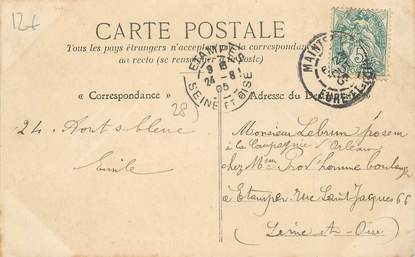 12€
CARTE POSTALE
Tous les pays étrangers n'acceptent pas la correspondance
au recto (se renseigner à la poste)
« Correspondance »
Adresse du
ETAMPES
24 -8
05
SEINE ET OISE
MAINTENON
EURE-ET-LOIR
5
28
24 Août
Emile
Monsieur Lebrun
à la Compagnie d'Orléans
chez Mme Prod'homme boulanger
à Etampes rue Saint Jacques 66
(Seine-et-Oise)